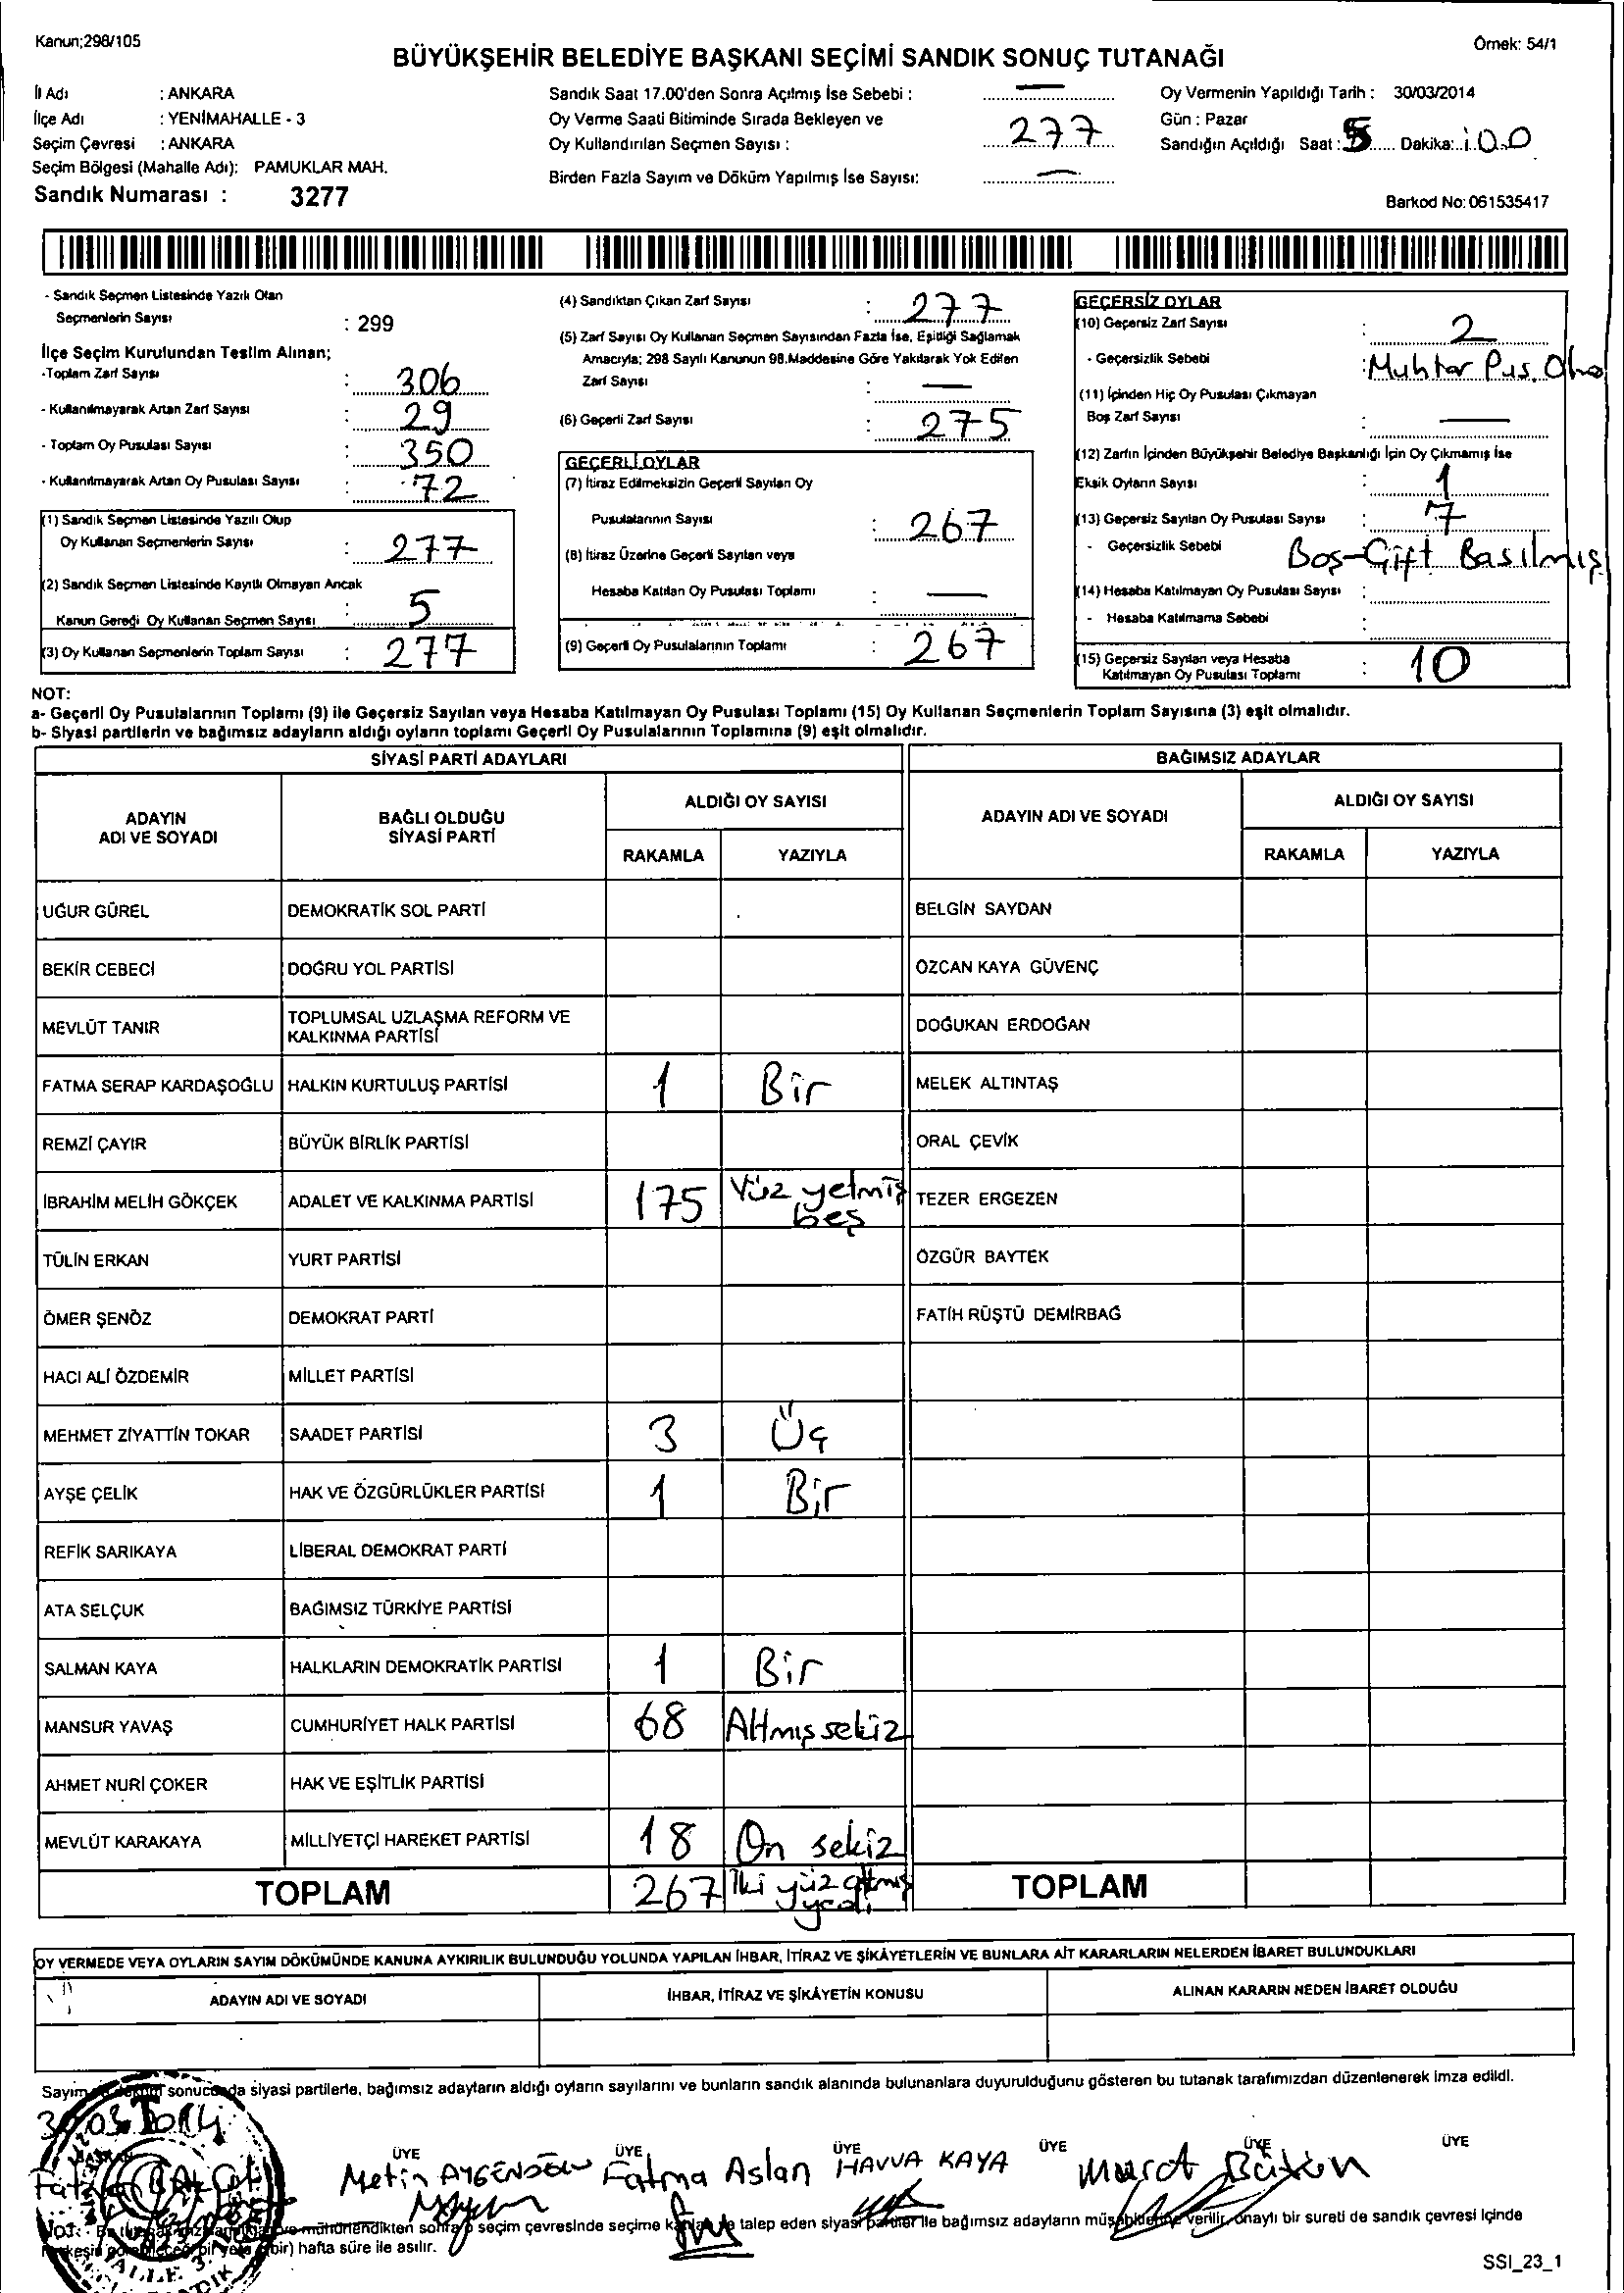 Kanun;298/105
Örnek: 54/1
BÜYÜKŞEHİR BELEDİYE BAŞKANI SEÇİMİ SANDIK SONUÇ TUTANAĞI
İl Adı : ANKARA
İlçe Adı : YENİMAHALLE - 3
Seçim Çevresi : ANKARA
Seçim Bölgesi (Mahalle Adı): PAMUKLAR MAH.
Sandık Numarası : 3277
Sandık Saat 17.00'den Sonra Açılmış İse Sebebi : —
Oy Verme Saati Bitiminde Sırada Bekleyen ve
Oy Kullandırılan Seçmen Sayısı : 277
Birden Fazla Sayım ve Döküm Yapılmış İse Sayısı: —
Oy Vermenin Yapıldığı Tarih : 30/03/2014
Gün : Pazar
Sandığın Açıldığı Saat : 5 Dakika:
Barkod No: 061535417
- Sandık Seçmen Listesinde Yazılı Olan
Seçmenlerin Sayısı : 299
İlçe Seçim Kurulundan Teslim Alınan;
-Toplam Zarf Sayısı : 306
- Kullanılmayarak Artan Zarf Sayısı : 29
- Toplam Oy Pusulası Sayısı : 350
- Kullanılmayarak Artan Oy Pusulası Sayısı : 72
(1) Sandık Seçmen Listesinde Yazılı Olup
Oy Kullanan Seçmenlerin Sayısı : 277
(2) Sandık Seçmen Listesinde Kayıtlı Olmayan Ancak
Kanun Gereği Oy Kullanan Seçmen Sayısı : 5
(3) Oy Kullanan Seçmenlerin Toplam Sayısı : 277
(4) Sandıktan Çıkan Zarf Sayısı : 277
(5) Zarf Sayısı Oy Kullanan Seçmen Sayısından Fazla İse, Eşitliği Sağlamak
Amacıyla; 298 Sayılı Kanunun 98.Maddesine Göre Yakılarak Yok Edilen
Zarf Sayısı : —
(6) Geçerli Zarf Sayısı : 275
GEÇERLİ OYLAR
(7) İtiraz Edilmeksizin Geçerli Sayılan Oy
Pusulalarının Sayısı : 267
(8) İtiraz Üzerine Geçerli Sayılan veya
Hesaba Katılan Oy Pusulası Toplamı : —
(9) Geçerli Oy Pusulalarının Toplamı : 267
GEÇERSİZ OYLAR
(10) Geçersiz Zarf Sayısı : 2
- Geçersizlik Sebebi : Muhtar Pus.
(11) İçinden Hiç Oy Pusulası Çıkmayan
Boş Zarf Sayısı : —
(12) Zarfın İçinden Büyükşehir Belediye Başkanlığı İçin Oy Çıkmamış İse
Eksik Oyların Sayısı : 1
(13) Geçersiz Sayılan Oy Pusulası Sayısı : 7
- Geçersizlik Sebebi Boş-Çift Basılmış
(14) Hesaba Katılmayan Oy Pusulası Sayısı :
- Hesaba Katılmama Sebebi :
(15) Geçersiz Sayılan veya Hesaba
Katılmayan Oy Pusulası Toplamı : 10
NOT:
a- Geçerli Oy Pusulalarının Toplamı (9) ile Geçersiz Sayılan veya Hesaba Katılmayan Oy Pusulası Toplamı (15) Oy Kullanan Seçmenlerin Toplam Sayısına (3) eşit olmalıdır.
b- Siyasi partilerin ve bağımsız adayların aldığı oyların toplamı Geçerli Oy Pusulalarının Toplamına (9) eşit olmalıdır.
SİYASİ PARTİ ADAYLARI BAĞIMSIZ ADAYLAR
ADAYIN ADI VE SOYADI BAĞLI OLDUĞU SİYASİ PARTİ ALDIĞI OY SAYISI ADAYIN ADI VE SOYADI ALDIĞI OY SAYISI
RAKAMLA YAZIYLA RAKAMLA YAZIYLA
UĞUR GÜREL DEMOKRATİK SOL PARTİ BELGİN SAYDAN
BEKİR CEBECİ DOĞRU YOL PARTİSİ ÖZCAN KAYA GÜVENÇ
MEVLÜT TANIR TOPLUMSAL UZLAŞMA REFORM VE KALKINMA PARTİSİ DOĞUKAN ERDOĞAN
FATMA SERAP KARDAŞOĞLU HALKIN KURTULUŞ PARTİSİ 1 Bir MELEK ALTINTAŞ
REMZİ ÇAYIR BÜYÜK BİRLİK PARTİSİ ORAL ÇEVİK
İBRAHİM MELİH GÖKÇEK ADALET VE KALKINMA PARTİSİ 175 Yüz yetmiş beş TEZER ERGEZEN
TÜLİN ERKAN YURT PARTİSİ ÖZGÜR BAYTEK
ÖMER ŞENÖZ DEMOKRAT PARTİ FATİH RÜŞTÜ DEMİRBAĞ
HACI ALİ ÖZDEMİR MİLLET PARTİSİ
MEHMET ZİYATTİN TOKAR SAADET PARTİSİ 3 Üç
AYŞE ÇELİK HAK VE ÖZGÜRLÜKLER PARTİSİ 1 Bir
REFİK SARIKAYA LİBERAL DEMOKRAT PARTİ
ATA SELÇUK BAĞIMSIZ TÜRKİYE PARTİSİ
SALMAN KAYA HALKLARIN DEMOKRATİK PARTİSİ 1 Bir
MANSUR YAVAŞ CUMHURİYET HALK PARTİSİ 68 Altmış sekiz
AHMET NURİ ÇOKER HAK VE EŞİTLİK PARTİSİ
MEVLÜT KARAKAYA MİLLİYETÇİ HAREKET PARTİSİ 18 On sekiz
TOPLAM 267 İki yüz altmış yedi TOPLAM
OY VERMEDE VEYA OYLARIN SAYIM DÖKÜMÜNDE KANUNA AYKIRILIK BULUNDUĞU YOLUNDA YAPILAN İHBAR, İTİRAZ VE ŞİKÂYETLERİN VE BUNLARA AİT KARARLARIN NELERDEN İBARET BULUNDUKLARI
ADAYIN ADI VE SOYADI İHBAR, İTİRAZ VE ŞİKÂYETİN KONUSU ALINAN KARARIN NEDEN İBARET OLDUĞU
Sayım siyasi partilerle, bağımsız adayların aldığı oyların sayılarını ve bunların sandık alanında bulunanlara duyurulduğunu gösteren bu tutanak tarafımızdan düzenlenerek imza edildi.
ÜYE ÜYE ÜYE ÜYE ÜYE ÜYE
Metin Fatma Aslan HAVVA KAYA Murat
seçim çevresinde seçime talep eden siyasi ile bağımsız adayların verilir, onaylı bir sureti de sandık çevresi içinde
hafta süre ile asılır.
SSI_23_1